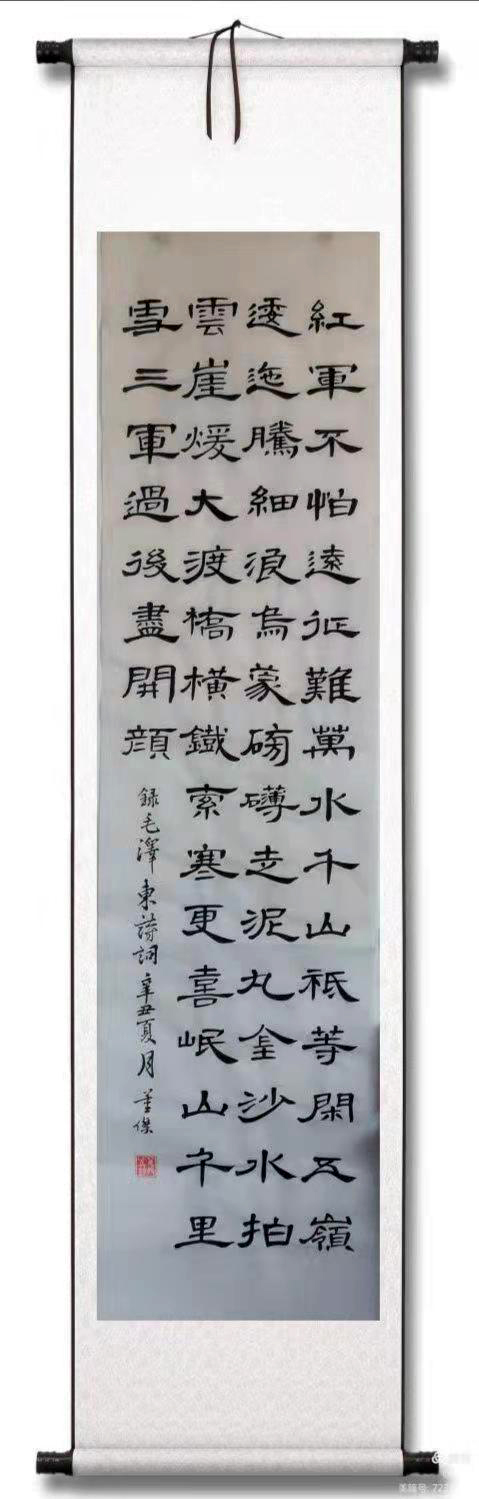 紅軍不怕遠征難萬水千山祗等閑五嶺
逶迤騰細浪烏蒙磅礴走泥丸金沙水拍
雲崖煖大渡橋橫鐵索寒更喜岷山千里
雪三軍過後盡開顔
錄毛澤東詩詞辛丑夏月董傑
美篇号